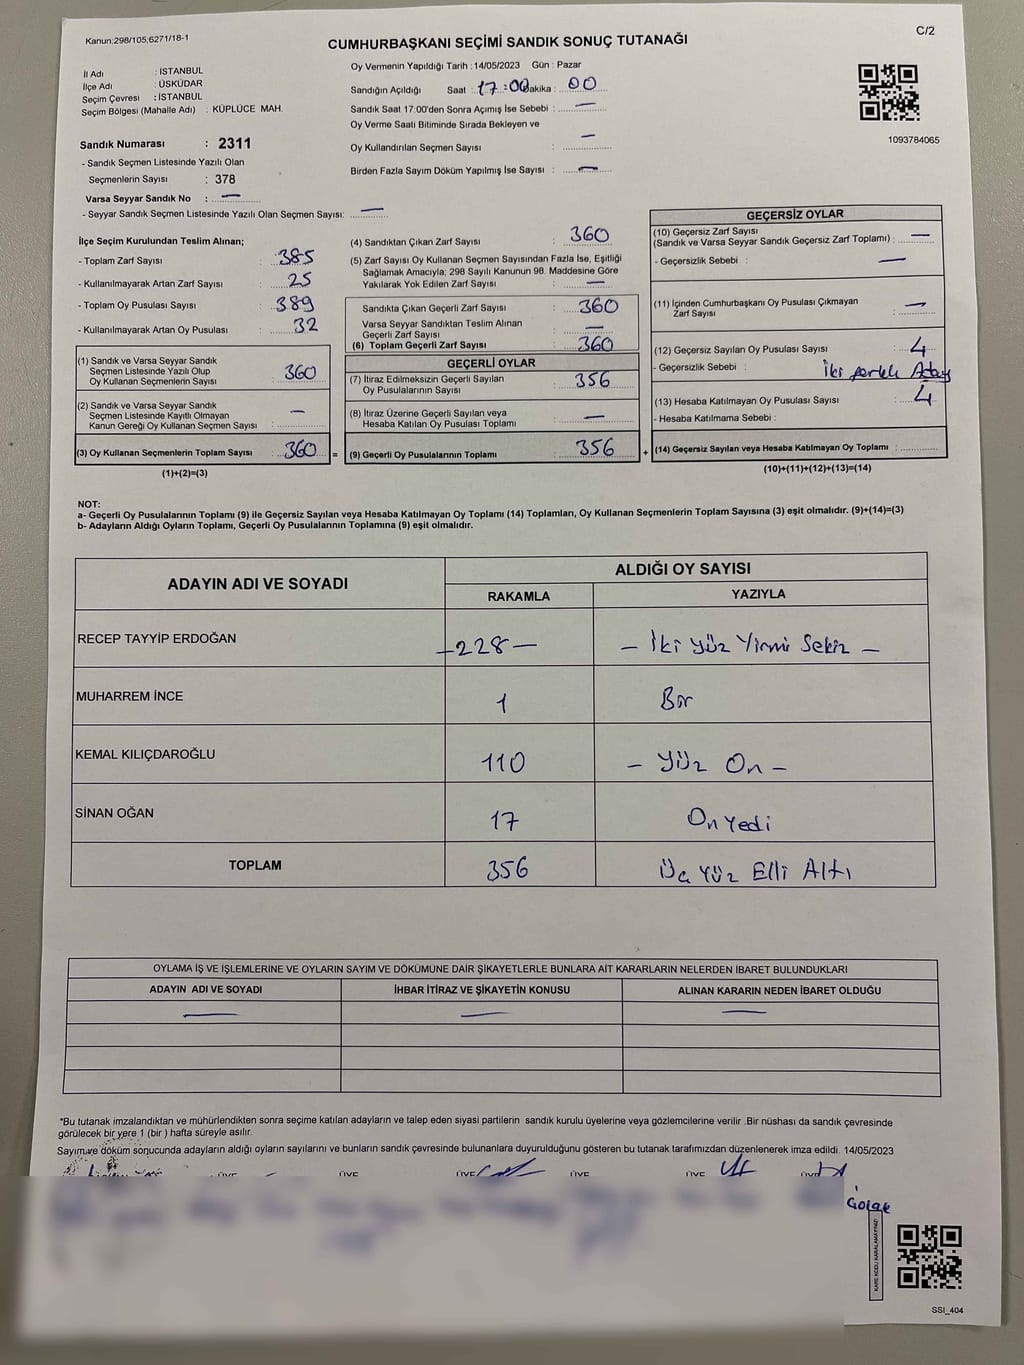 Kanun:298/105,6271/18-1
C/2
CUMHURBAŞKANI SEÇİMİ SANDIK SONUÇ TUTANAĞI
İl Adı : İSTANBUL
İlçe Adı : ÜSKÜDAR
Seçim Çevresi : İSTANBUL
Seçim Bölgesi (Mahalle Adı) : KÜPLÜCE MAH.
Sandık Numarası : 2311
- Sandık Seçmen Listesinde Yazılı Olan
Seçmenlerin Sayısı : 378
Varsa Seyyar Sandık No : —
- Seyyar Sandık Seçmen Listesinde Yazılı Olan Seçmen Sayısı: —
Oy Vermenin Yapıldığı Tarih :14/05/2023 Gün : Pazar
Sandığın Açıldığı Saat : 17:00 Dakika : 00
Sandık Saat 17:00'den Sonra Açımış İse Sebebi : —
Oy Verme Saati Bitiminde Sırada Bekleyen ve
Oy Kullandırılan Seçmen Sayısı : —
Birden Fazla Sayım Döküm Yapılmış İse Sayısı : —
1093784065
İlçe Seçim Kurulundan Teslim Alınan;
- Toplam Zarf Sayısı : 385
- Kullanılmayarak Artan Zarf Sayısı : 25
- Toplam Oy Pusulası Sayısı : 389
- Kullanılmayarak Artan Oy Pusulası : 32
(1) Sandık ve Varsa Seyyar Sandık
Seçmen Listesinde Yazılı Olup
Oy Kullanan Seçmenlerin Sayısı : 360
(2) Sandık ve Varsa Seyyar Sandık
Seçmen Listesinde Kayıtlı Olmayan
Kanun Gereği Oy Kullanan Seçmen Sayısı : —
(3) Oy Kullanan Seçmenlerin Toplam Sayısı : 360
(1)+(2)=(3)
(4) Sandıktan Çıkan Zarf Sayısı : 360
(5) Zarf Sayısı Oy Kullanan Seçmen Sayısından Fazla İse, Eşitliği
Sağlamak Amacıyla; 298 Sayılı Kanunun 98. Maddesine Göre
Yakılarak Yok Edilen Zarf Sayısı : —
Sandıkta Çıkan Geçerli Zarf Sayısı : 360
Varsa Seyyar Sandıktan Teslim Alınan
Geçerli Zarf Sayısı : —
(6) Toplam Geçerli Zarf Sayısı : 360
GEÇERLİ OYLAR
(7) İtiraz Edilmeksizin Geçerli Sayılan
Oy Pusulalarının Sayısı : 356
(8) İtiraz Üzerine Geçerli Sayılan veya
Hesaba Katılan Oy Pusulası Toplamı : —
= (9) Geçerli Oy Pusulalarının Toplamı : 356
GEÇERSİZ OYLAR
(10) Geçersiz Zarf Sayısı
(Sandık ve Varsa Seyyar Sandık Geçersiz Zarf Toplamı) : —
- Geçersizlik Sebebi : —
(11) İçinden Cumhurbaşkanı Oy Pusulası Çıkmayan
Zarf Sayısı : —
(12) Geçersiz Sayılan Oy Pusulası Sayısı : 4
- Geçersizlik Sebebi : İki farklı Aday
(13) Hesaba Katılmayan Oy Pusulası Sayısı : 4
- Hesaba Katılmama Sebebi :
+ (14) Geçersiz Sayılan veya Hesaba Katılmayan Oy Toplamı :
(10)+(11)+(12)+(13)=(14)
NOT:
a- Geçerli Oy Pusulalarının Toplamı (9) ile Geçersiz Sayılan veya Hesaba Katılmayan Oy Toplamı (14) Toplamları, Oy Kullanan Seçmenlerin Toplam Sayısına (3) eşit olmalıdır. (9)+(14)=(3)
b- Adayların Aldığı Oyların Toplamı, Geçerli Oy Pusulalarının Toplamına (9) eşit olmalıdır.
ADAYIN ADI VE SOYADI
ALDIĞI OY SAYISI
RAKAMLA YAZIYLA
RECEP TAYYİP ERDOĞAN —228— — İki Yüz Yirmi Sekiz —
MUHARREM İNCE 1 Bir
KEMAL KILIÇDAROĞLU 110 — Yüz On —
SİNAN OĞAN 17 On Yedi
TOPLAM 356 Üç Yüz Elli Altı
OYLAMA İŞ VE İŞLEMLERİNE VE OYLARIN SAYIM VE DÖKÜMÜNE DAİR ŞİKAYETLERLE BUNLARA AİT KARARLARIN NELERDEN İBARET BULUNDUKLARI
ADAYIN ADI VE SOYADI İHBAR İTİRAZ VE ŞİKAYETİN KONUSU ALINAN KARARIN NEDEN İBARET OLDUĞU
— — —
*Bu tutanak imzalandıktan ve mühürlendikten sonra seçime katılan adayların ve talep eden siyasi partilerin sandık kurulu üyelerine veya gözlemcilerine verilir .Bir nüshası da sandık çevresinde
görülecek bir yere 1 (bir ) hafta süreyle asılır.
Sayım ve döküm sonucunda adayların aldığı oyların sayılarını ve bunların sandık çevresinde bulunanlara duyurulduğunu gösteren bu tutanak tarafımızdan düzenlenerek imza edildi. 14/05/2023
ÜYE ÜYE ÜYE ÜYE ÜYE ÜYE
KARE KODU KARALAMAYINIZ!
SSI_404